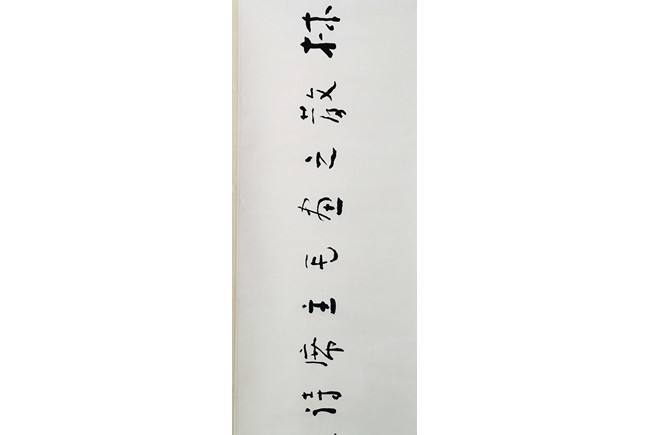 林散之書毛主席詩